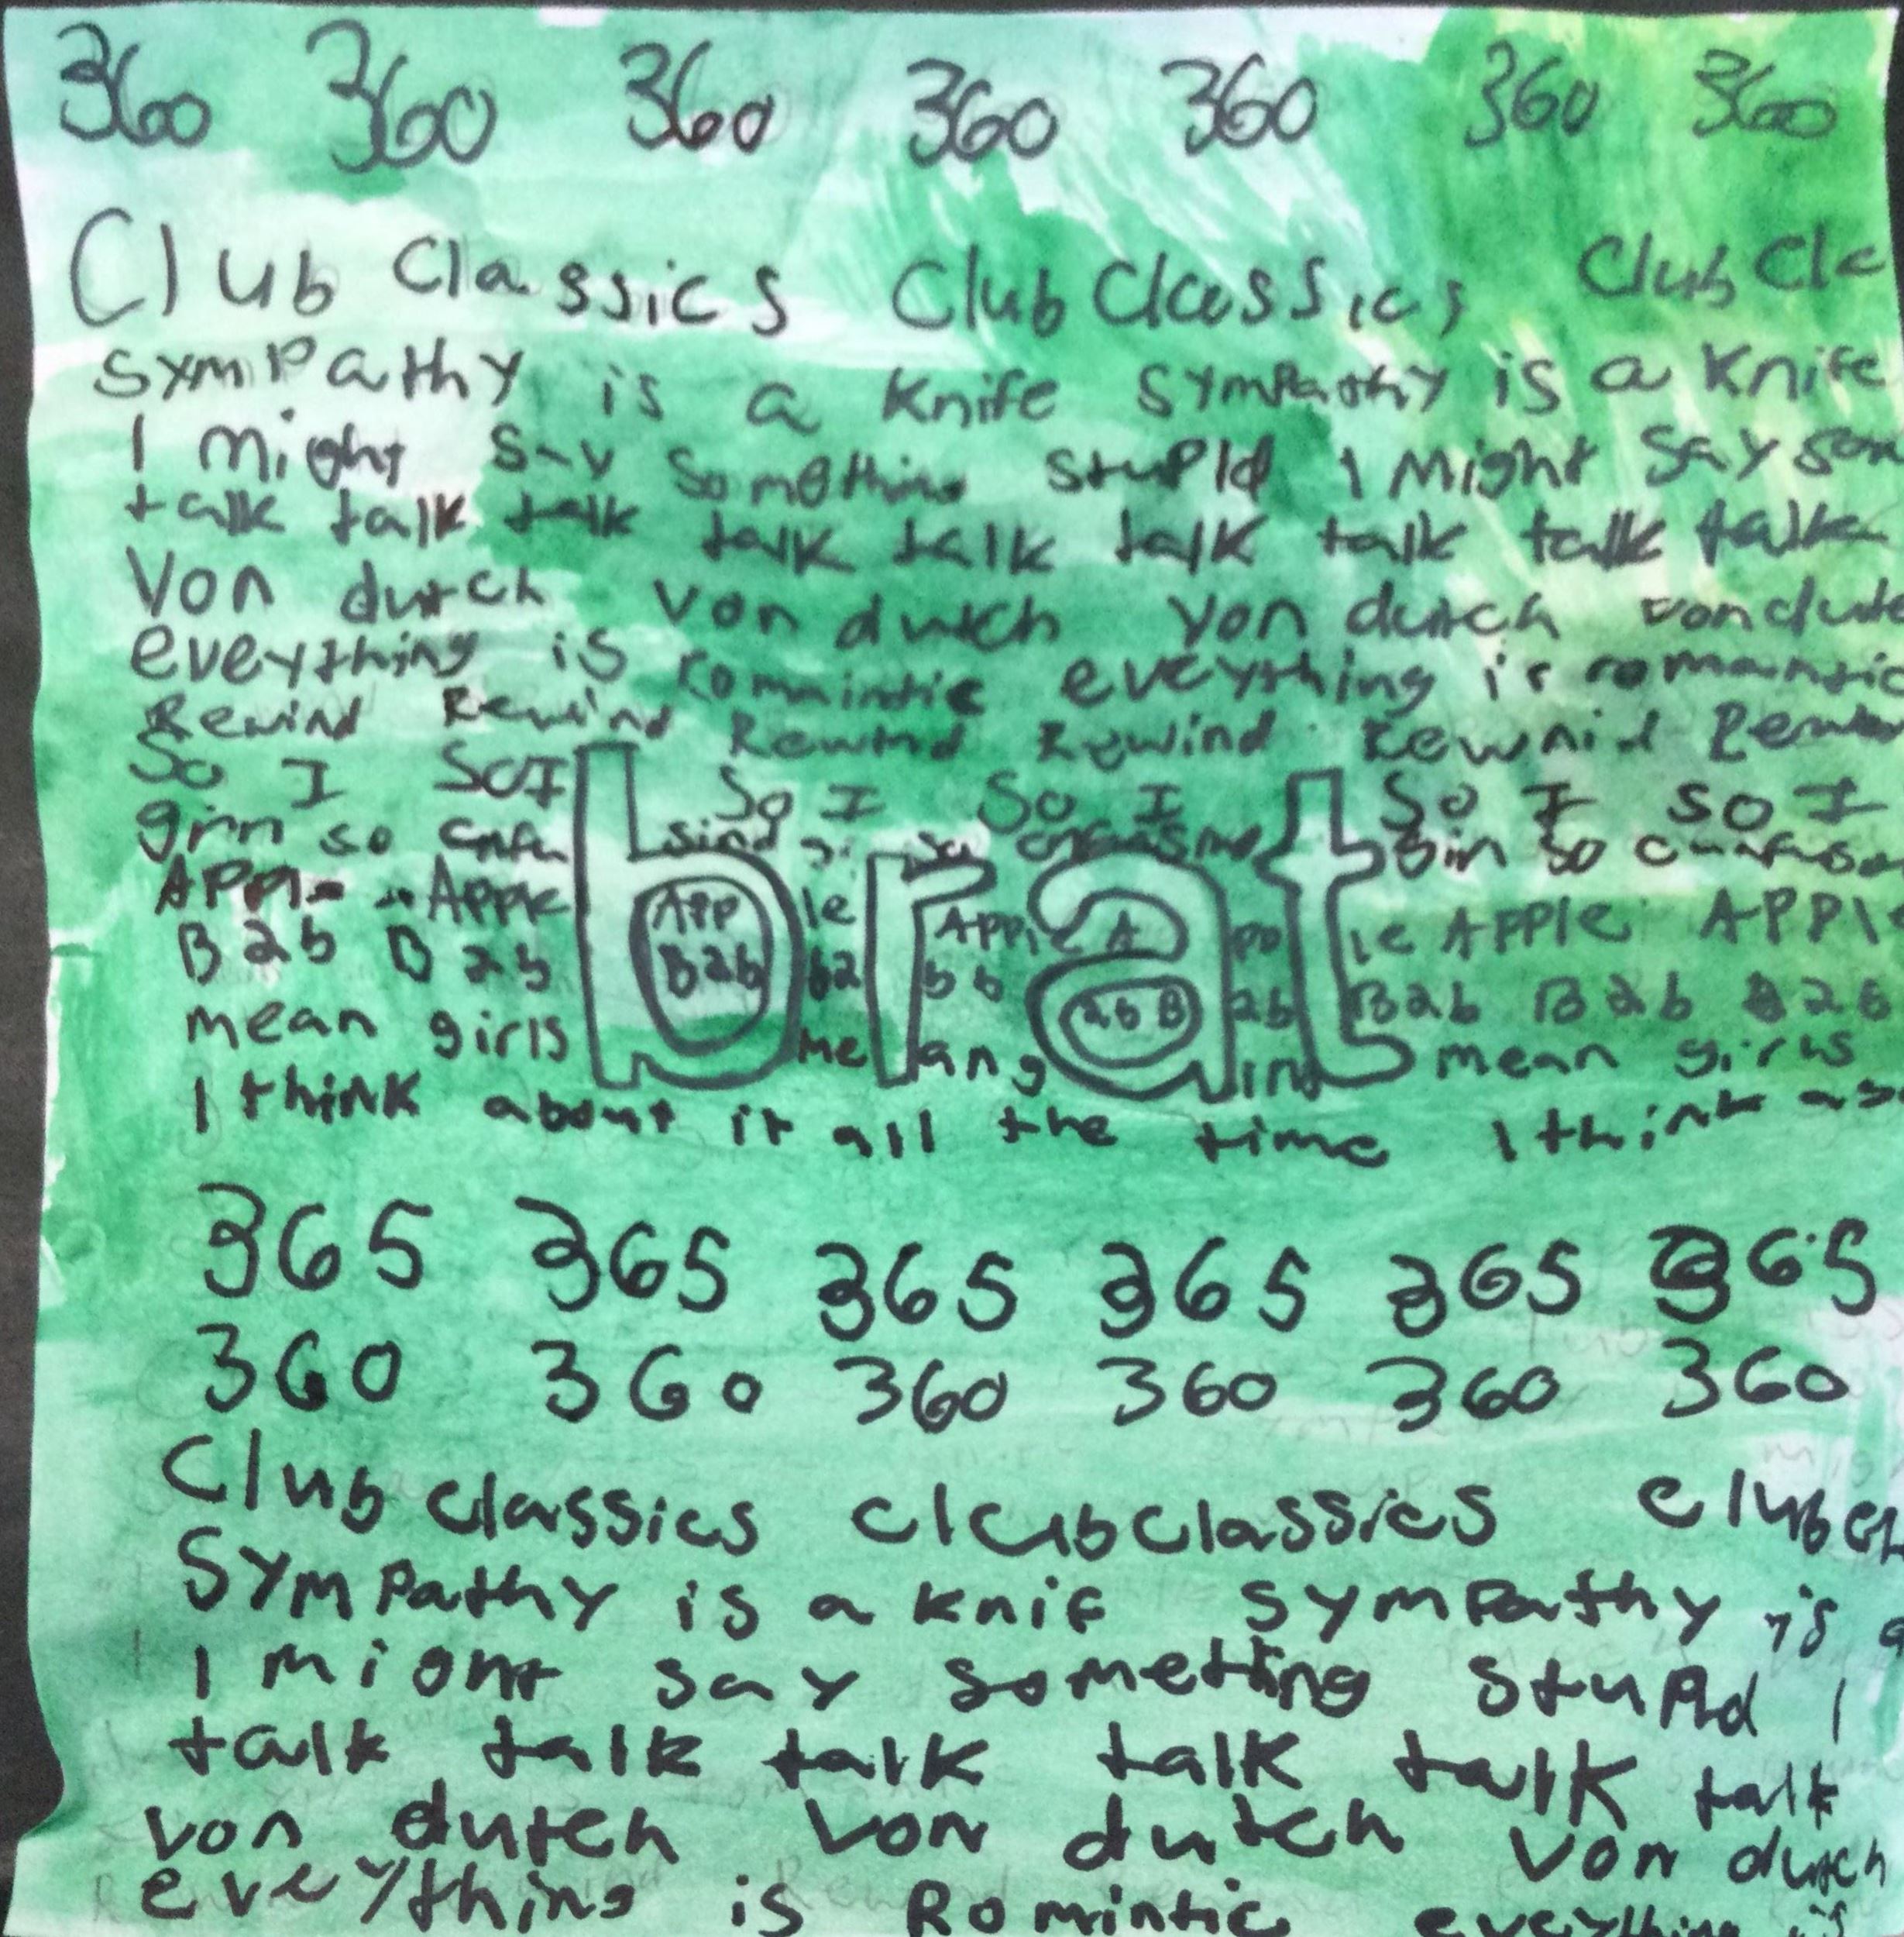 360 360 360 360 360 360 360
Club Classics Club Classics Club Cla
sympathy is a Knife sympathy is a Knife
I might say something stupid I might say som
talk talk talk talk talk talk talk talk talk
Von dutch von dutch von dutch von dutc
eveything is romaintic eveything is romantic
Rewind Rewind Rewind Rewind Rewnid
So I So I So I So I So I so I
girl so so confusing so
Apple Apple App le Apple A pp le Apple Appl
Bab Bab Bab ba bb ab B ab Bab Bab Bab
mean girls me an g mean girls
I think about it all the time I think
brat
365 365 365 365 365 365
360 360 360 360 360 360
Club classics clubclassics club
Sympathy is a knif sympathy is a
I might say something stupid I
talk talk talk talk talk talk
von dutch von dutch von dutch
eveything is Romintic eveything is